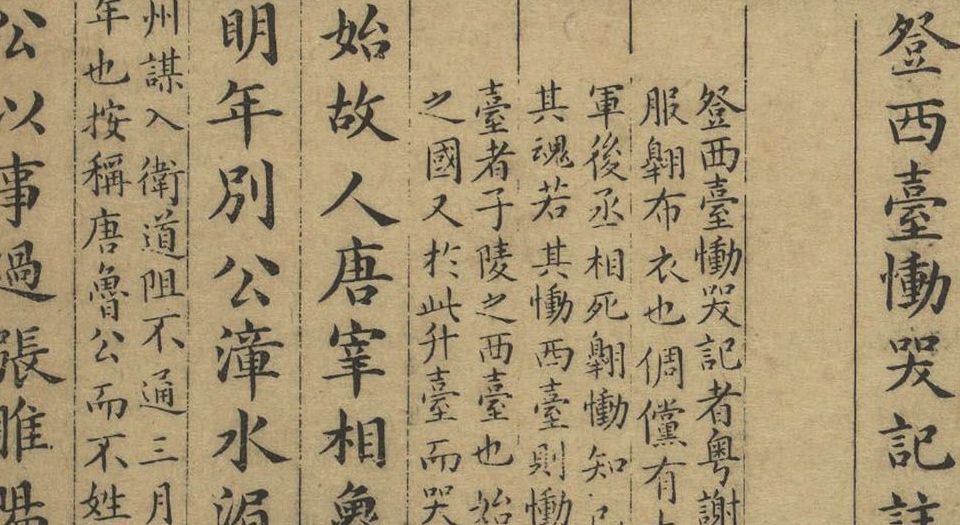 登西臺慟哭記註
登西臺慟哭記者粤謝
服翺布衣也倜儻有
軍後丞相死翺慟知己
其魂若其慟西臺則慟
臺者子陵之西臺也始
之國又於此升臺而哭
始故人唐宰相魯
明年別公漳水湄
州謀入衛道阻不通三月
年也按稱唐魯公而不姓
公以事過張睢陽